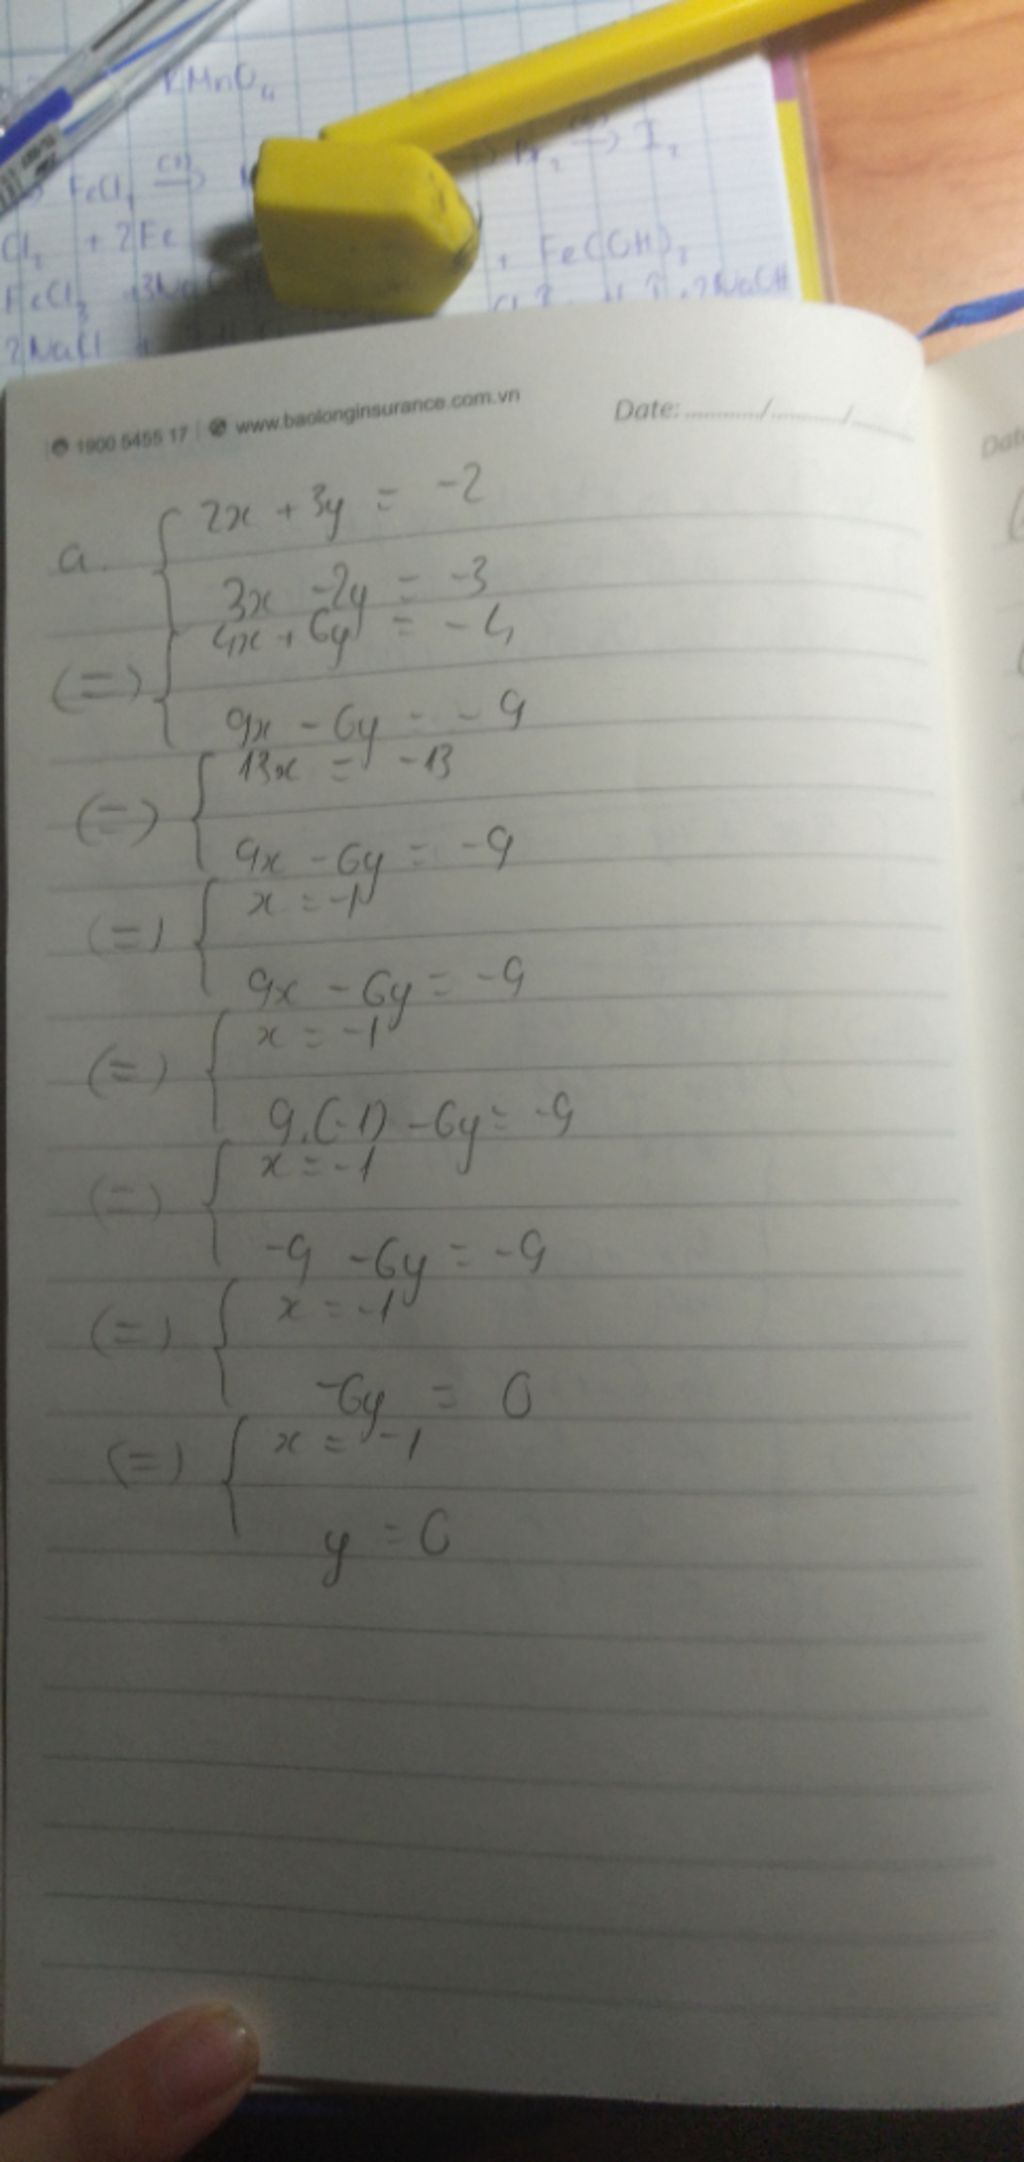 KMnO₄
FeCl₃ (3)→
Br₂ → I₂
Cl₂ + 2Fe
+ Fe(OH)₃
FeCl₃ +3Na
2NaOH
2NaCl +
1900 5455 17 | www.baolonginsurance.com.vn
Date:.........../.........../...........
a. { 2x + 3y = -2
3x - 2y = -3
(=) { 4x + 6y = -4
9x - 6y = -9
(=) { 13x = -13
9x - 6y = -9
(=) { x = -1
9x - 6y = -9
(=) { x = -1
9.(-1) - 6y = -9
(=) { x = -1
-9 - 6y = -9
(=) { x = -1
-6y = 0
(=) { x = -1
y = 0